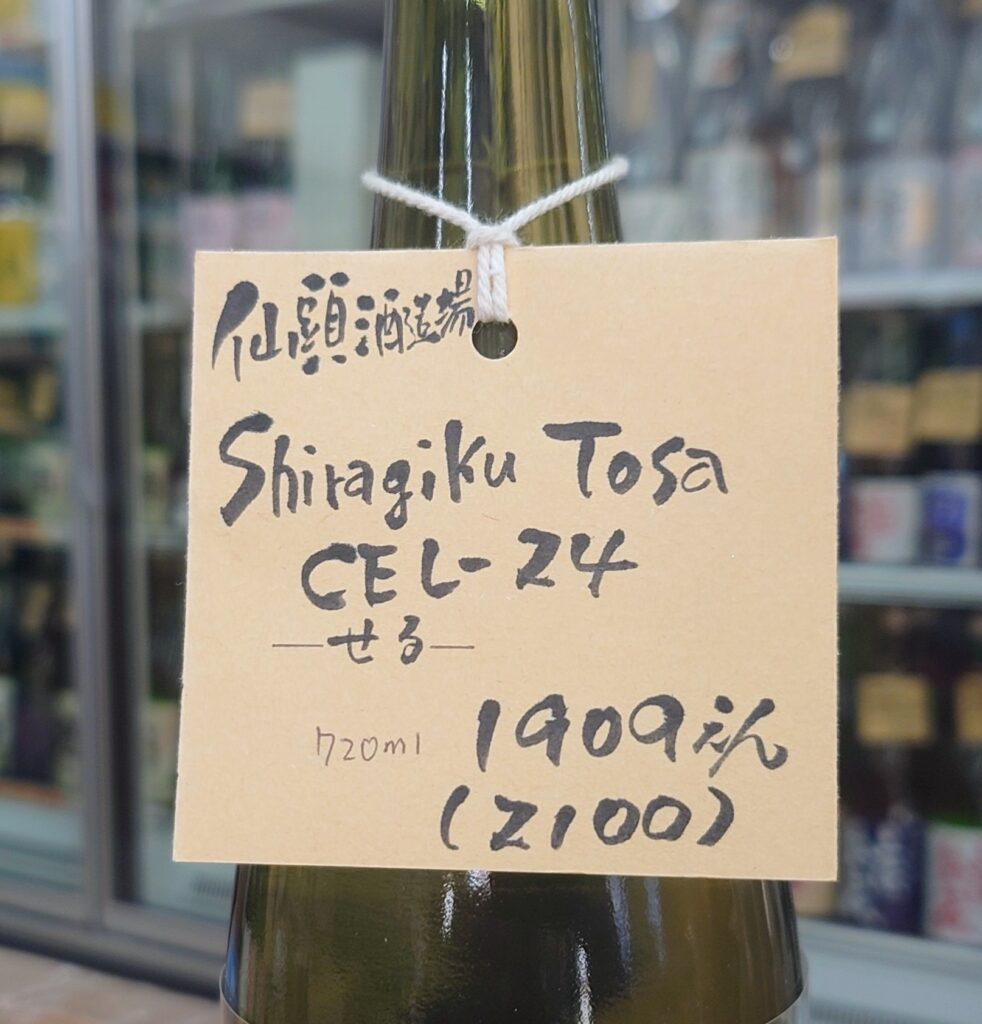 仙頭酒造場
Shiragiku Tosa
CEL-24
―せる―
720ml 1909えん
(2100)